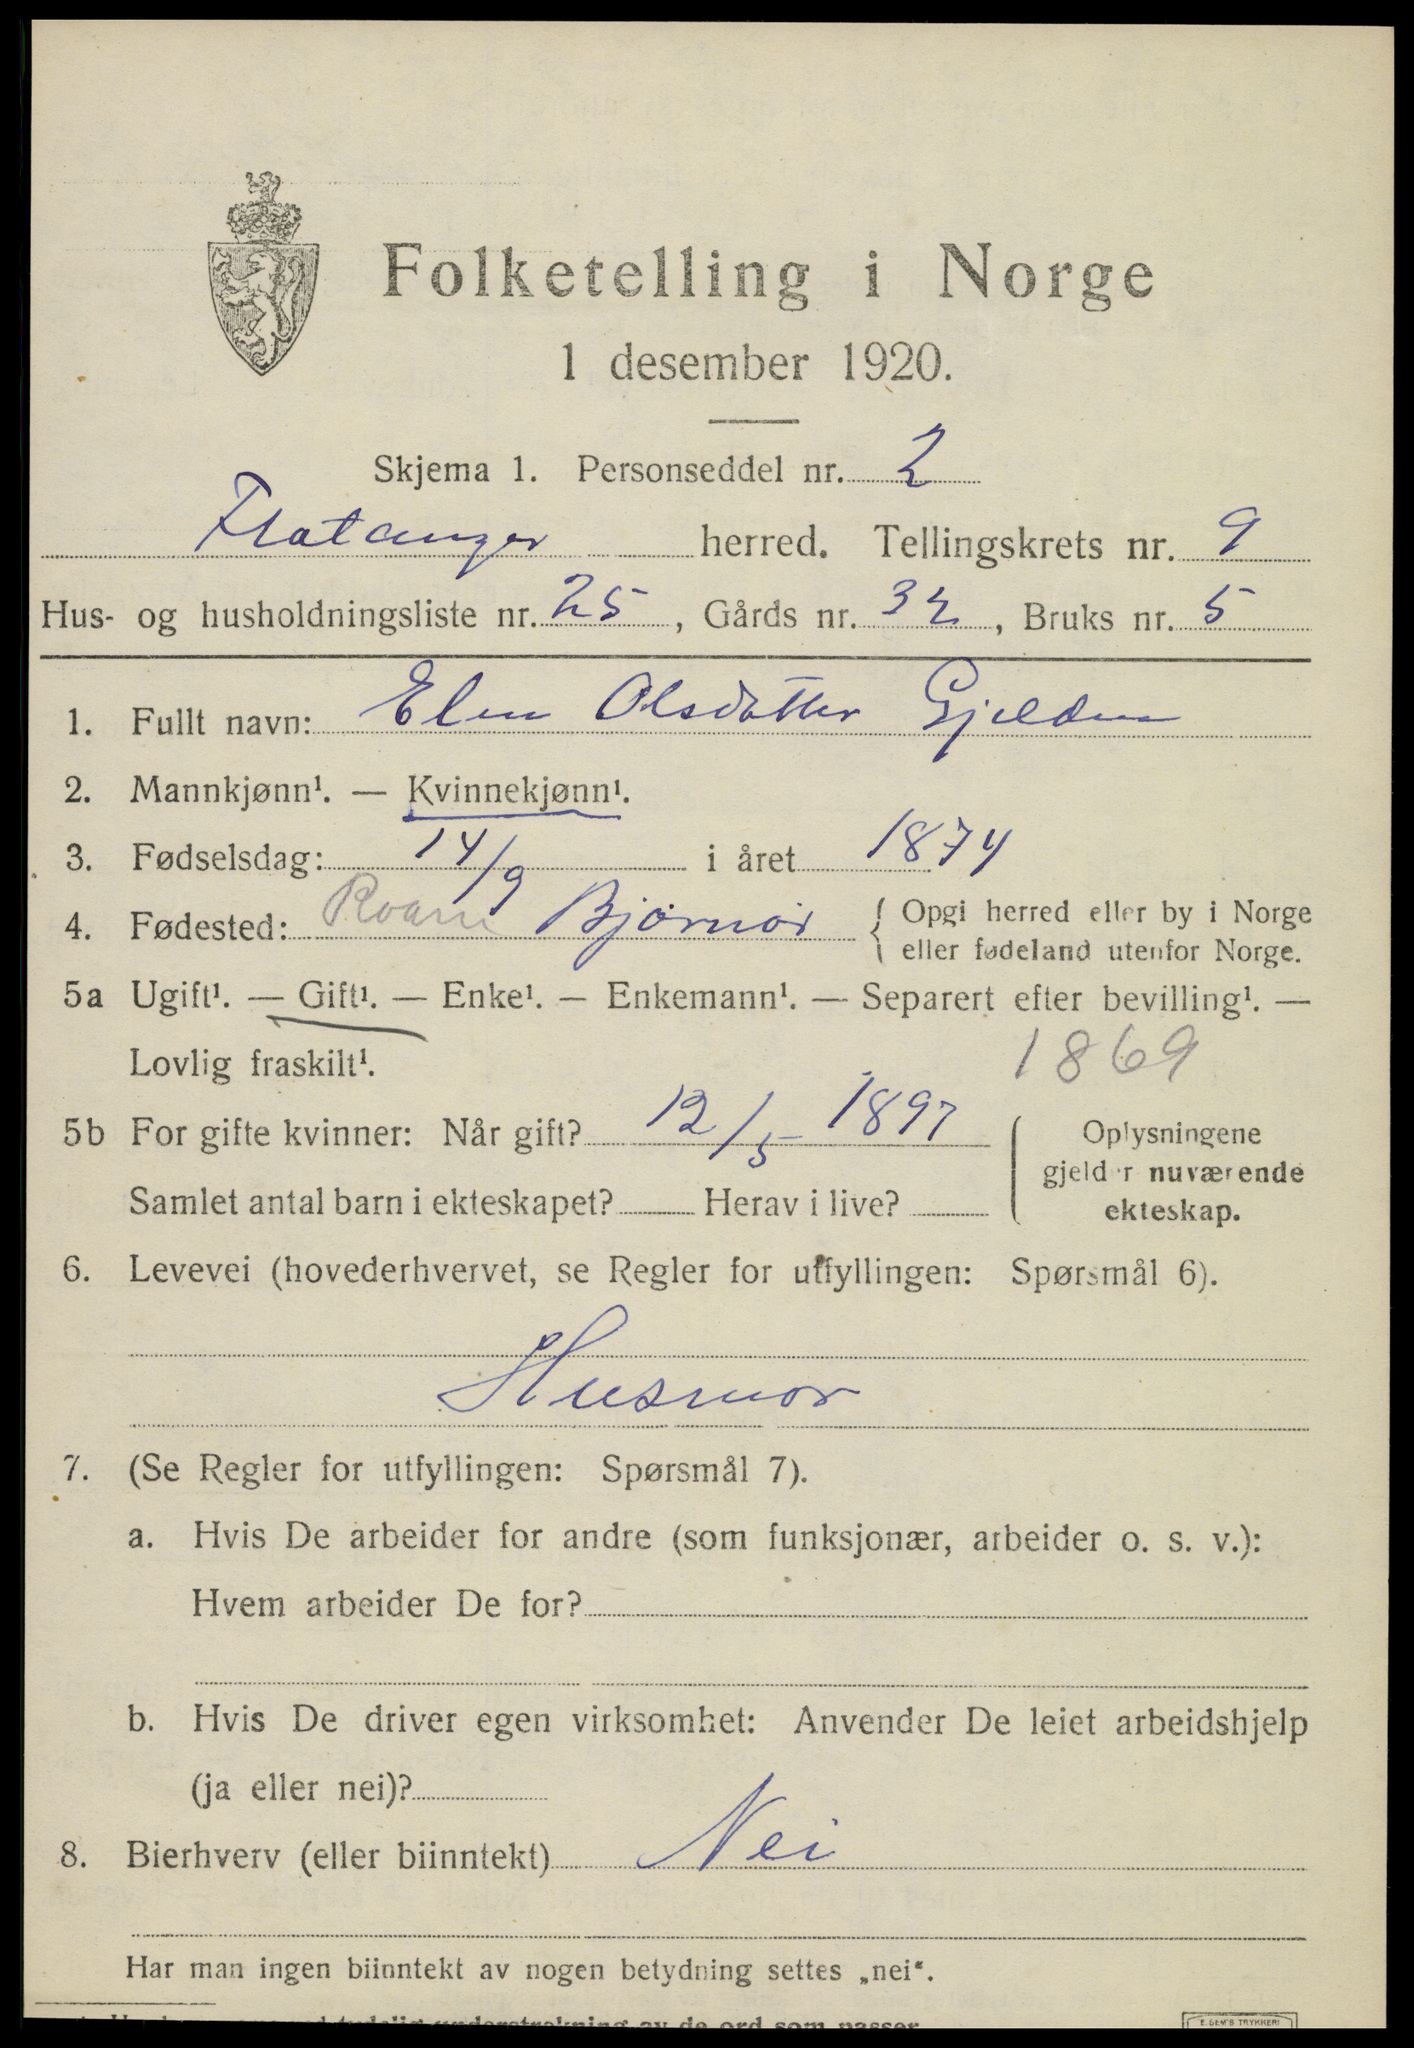 Folketelling i Norge
1 desember 1920.
Skjema 1. Personseddel nr. 2
Flatanger herred. Tellingskrets nr. 9
Hus- og husholdningsliste nr. 25, Gårds nr. 32, Bruks nr. 5
1. Fullt navn: Elen Olsdatter Gjelden
2. Mannkjønn¹. — Kvinnekjønn¹.
3. Fødselsdag: 14/9 i året 1874
4. Fødested: Roan Bjørnør { Opgi herred eller by i Norge
eller fødeland utenfor Norge.
5a Ugift¹. — Gift¹. — Enke¹. — Enkemann¹. — Separert efter bevilling¹. —
Lovlig fraskilt¹. 1869
5b For gifte kvinner: Når gift? 12/5 1897
Samlet antal barn i ekteskapet? Herav i live?
Oplysningene
gjelder nuværende
ekteskap.
6. Levevei (hovederhvervet, se Regler for utfyllingen: Spørsmål 6).
Husmor
7. (Se Regler for utfyllingen: Spørsmål 7).
a. Hvis De arbeider for andre (som funksjonær, arbeider o. s. v.):
Hvem arbeider De for?
b. Hvis De driver egen virksomhet: Anvender De leiet arbeidshjelp
(ja eller nei)?
8. Bierhverv (eller biinntekt) Nei
Har man ingen biinntekt av nogen betydning settes „nei“.
understrekning av de ord som passer
E. SEM'S TRYKKERI